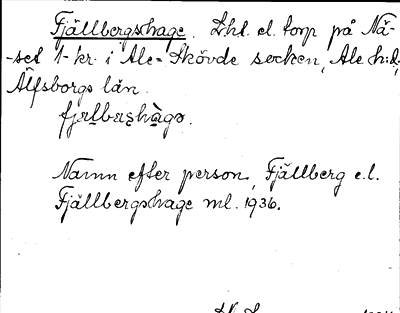 Fjällbergshage. Lht. el. torp på Nä-
-set 1-kr. i Ale-Skövde socken, Ale h:d,
Älfsborgs län.
fjalbashago.
Namn efter person, Fjällberg e.l.
Fjällbergshage ml. 1936.